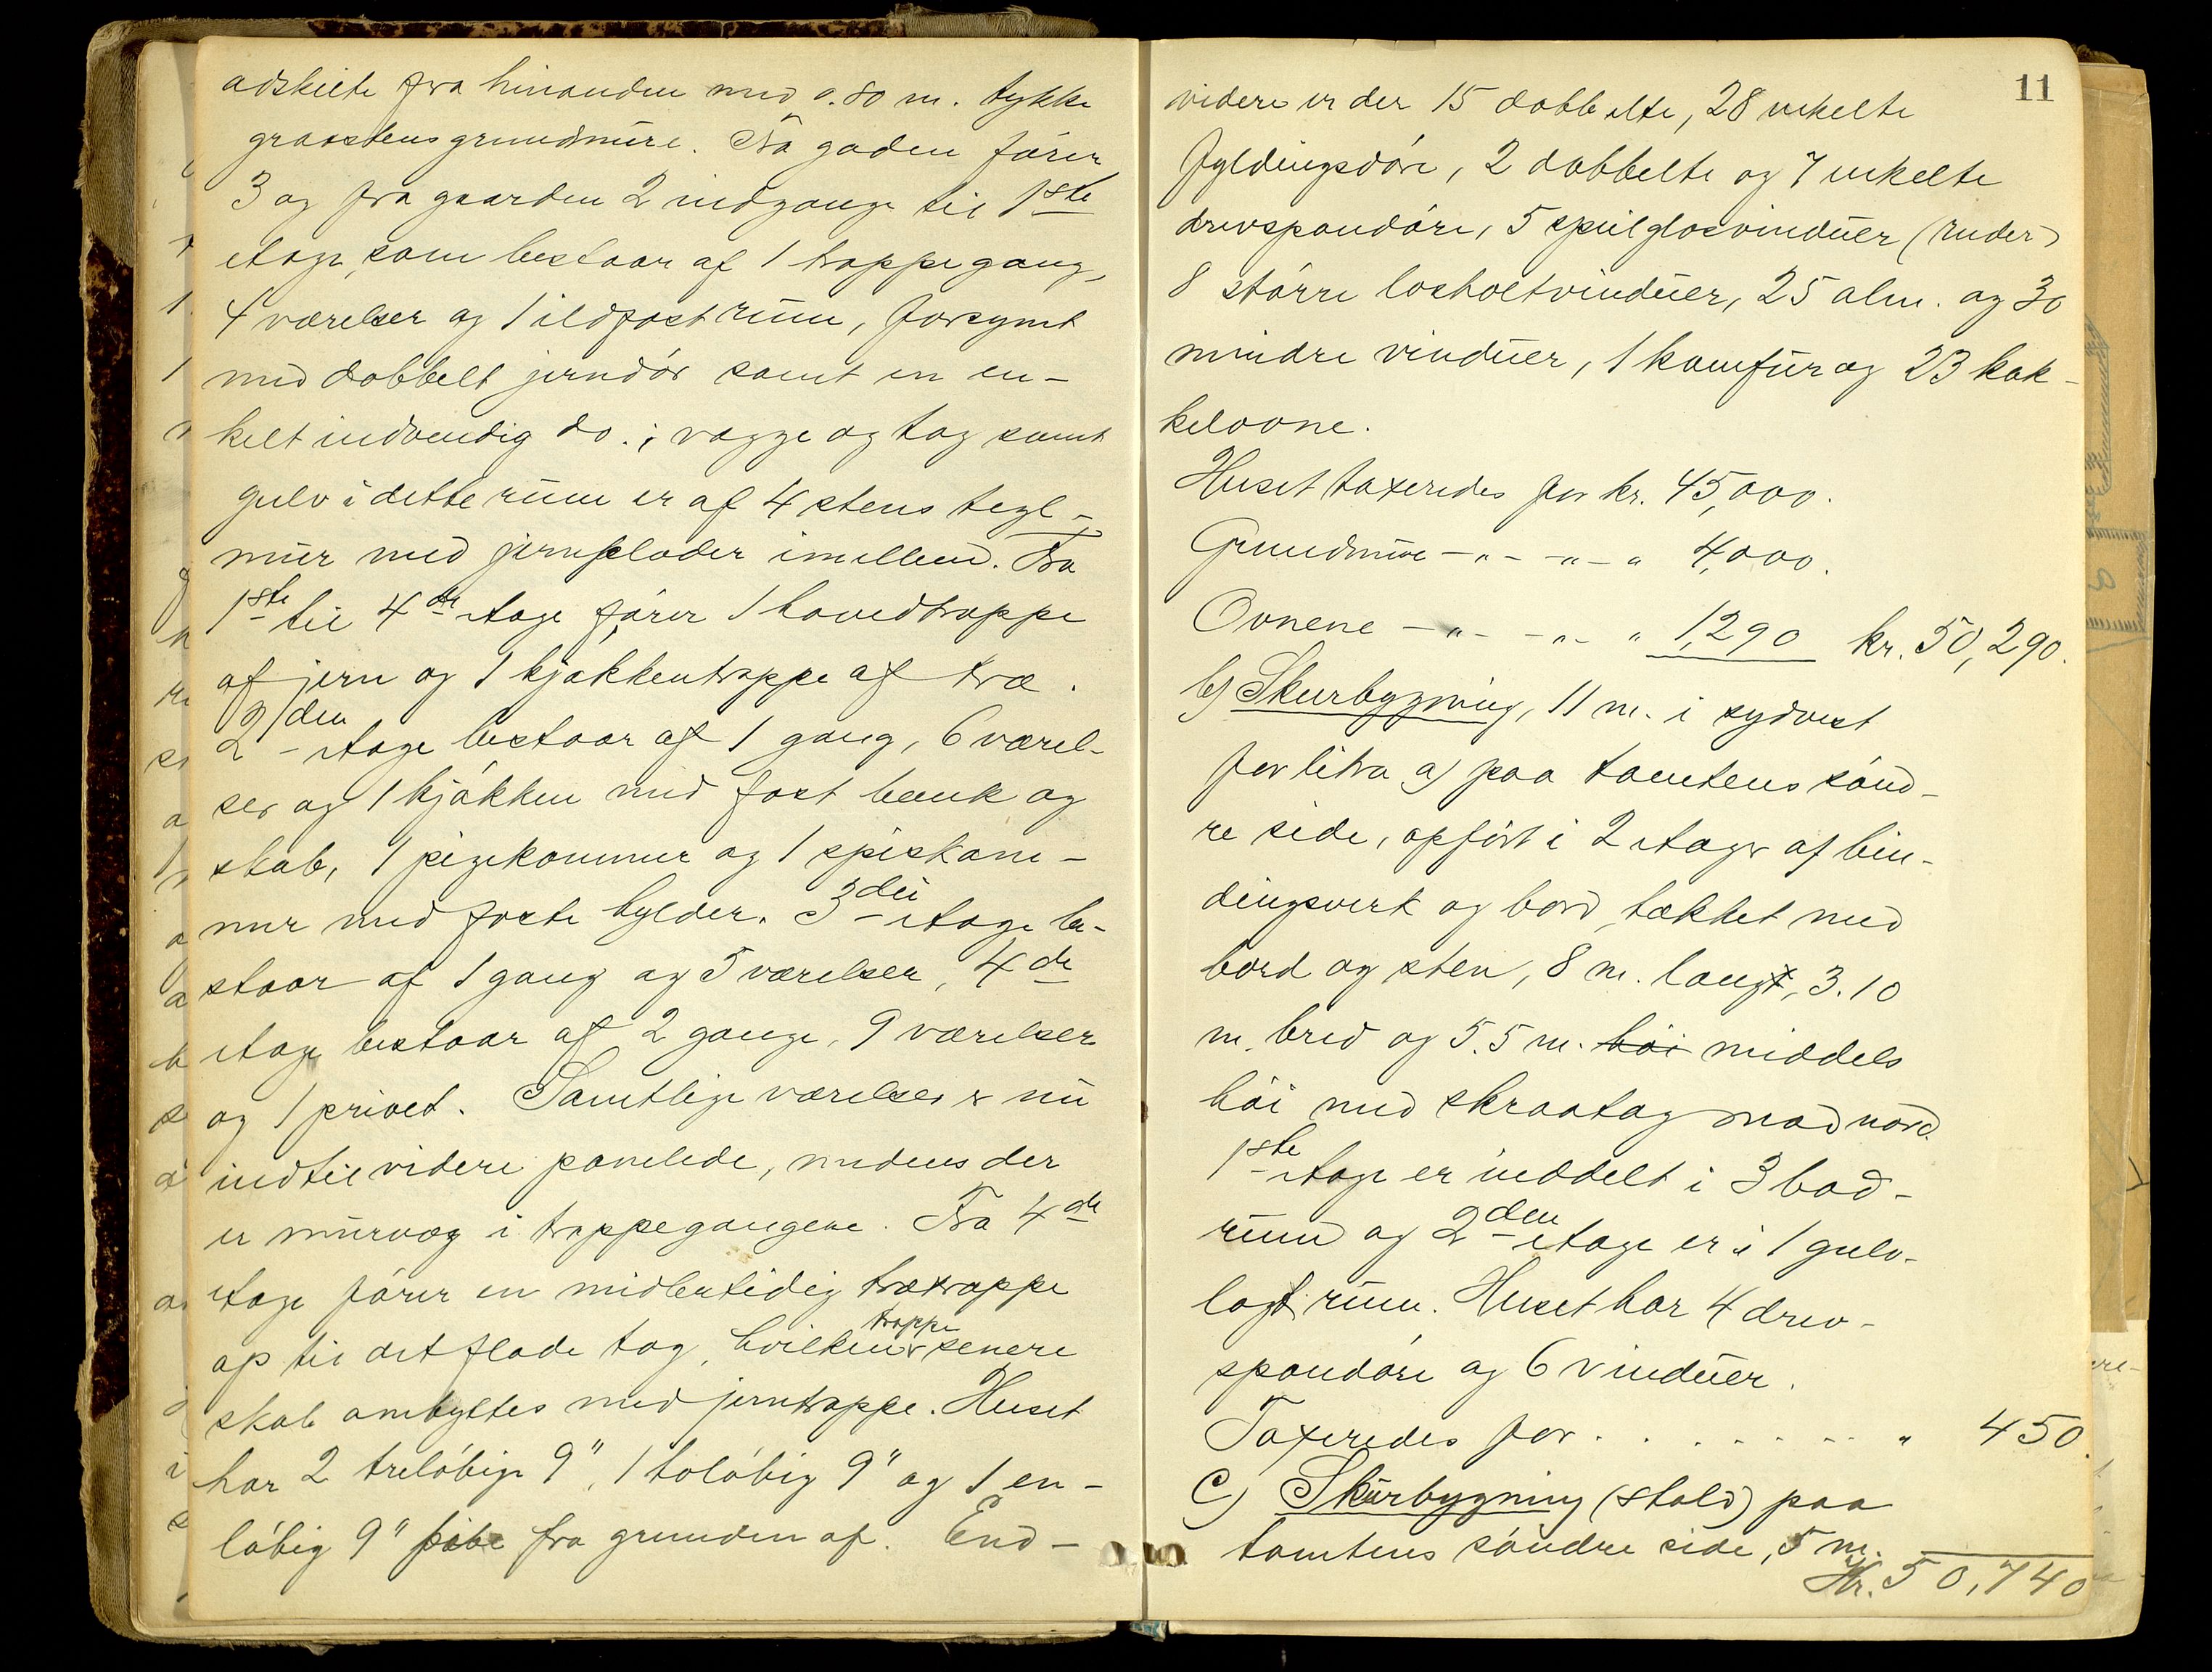 adskilte fra hinanden med 0.80 m. tykke
graastensgrundmüre. Fra gaden fører
3 og fra gaarden 2 indgange til 1ste
etage, som bestaar af 1 trappegang,
4 værelser og 1 ildfast rüm, forsynt
med dobbelt jerndør samt en en-
kelt indvendig do.; vægge og tag samt
gulv i dette rüm er af 4 stens tegl-
mür med jernplader imellem. Fra
1ste til 4de etage fører 1 hovedtrappe
af jern og 1 kjøkkentrappe af træ.
2den etage bestaar af 1 gang, 6 værel-
ser og 1 kjøkken med fast bænk og
skab, 1 pigekammer og 1 spiskam-
mer med faste hylder. 3die etage be-
staar af 1 gang og 5 værelser, 4de
etage bestaar af 2 gange, 9 værelser
og 1 privet. Samtlige værelser er nü
indtil videre panelede, medens der
er mürvæg i trappegangene. Fra 4de
etage fører en midlertidig trætrappe
op til det flade tag, hvilken trappe senere
skal ombyttes med jerntrappe. Huset
har 2 treløbige 9", 1 toløbig 9" og 1 en-
løbig 9" pibe fra grunden af. End-
11
videre er der 15 dobbelte, 28 enkelte
fyldingsdøre, 2 dobbelte og 7 enkelte
drevspandøre, 5 speilglasvindüer (ruder)
8 større losholtvindüer, 25 alm. og 30
mindre vindüer, 1 komfür og 23 kak-
kelovne.
Huset taxeredes for kr. 45,000.
Grundmüre -"- -"- " 4,000.
Ovnene -"- -"- " 1,290 kr. 50,290.
b) Skurbygning, 11 m. i sydvest
for litra a) paa tomtens sønd-
re side, opført i 2 etager af bin-
dingsverk og bord, tækket med
bord og sten, 8 m. lang, 3.10
m. bred og 5.5 m. høi middels
høi med skraatag mod nord.
1ste etage er inddelt i 3 bod-
rüm og 2den etage er i 1 gulv-
lagt rüm. Huset har 4 drev-
spandøre og 6 vindüer.
Taxeredes for . . . . . . . . " 450.
C) Skürbygning (stald) paa
tomtens søndre side, 5 m.
Kr. 50,740